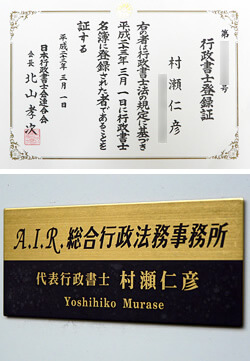 第　　号
行政書士登録証
村瀬仁彦
右の者は行政書士法の規定に基づき
平成二十三年三月一日に行政書士
名簿に登録された者であることを
証する
平成二十三年三月一日
日本行政書士会連合会
会長 北山孝次
A.I.R.総合行政法務事務所
代表行政書士 村瀬仁彦
Yoshihiko Murase